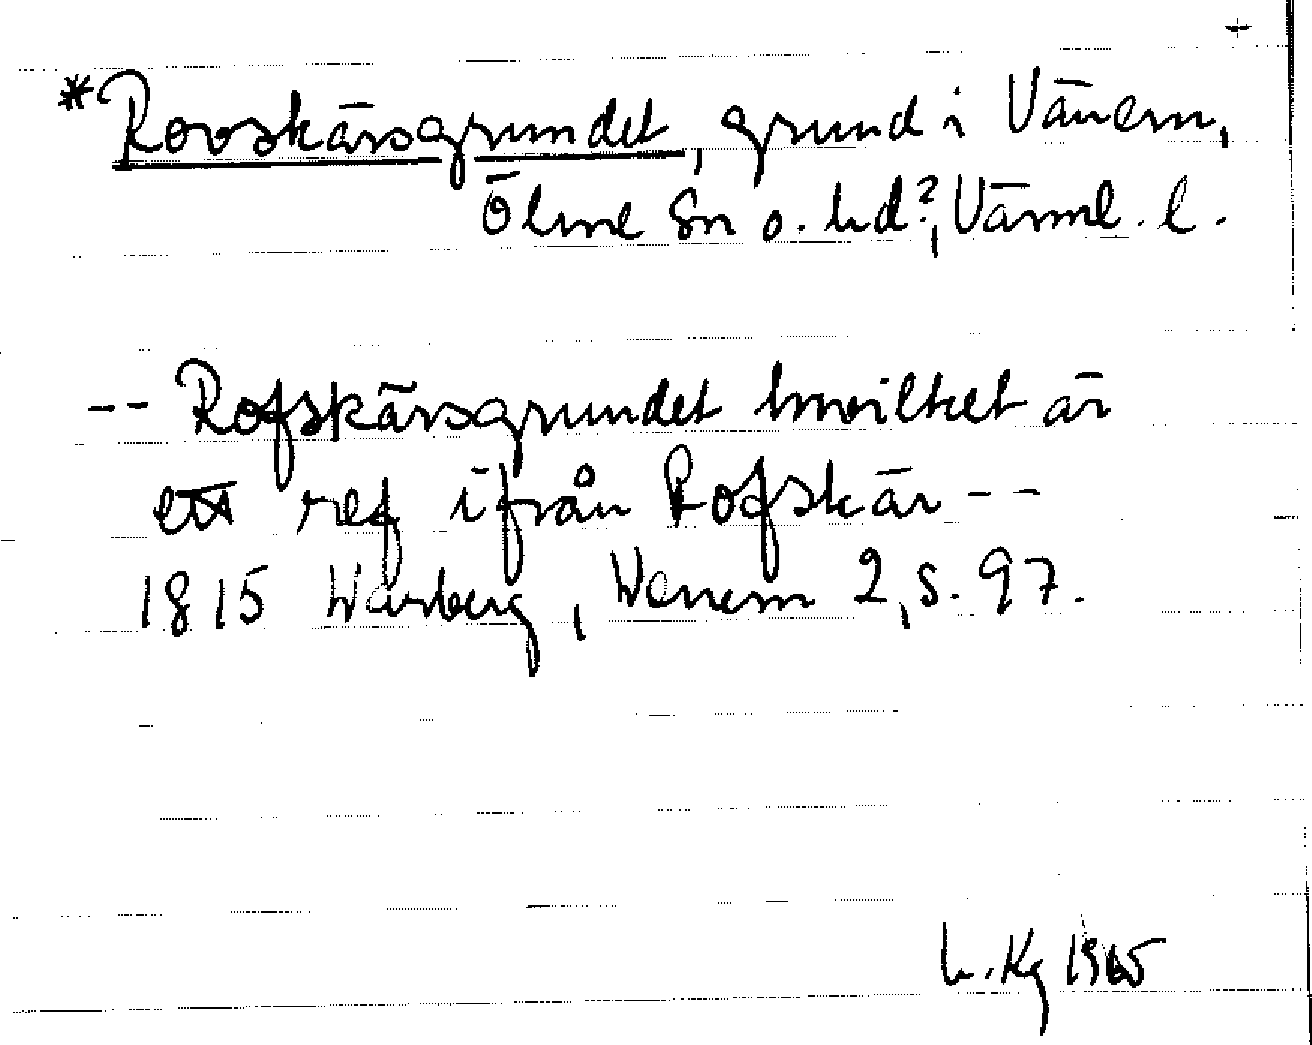 +
*Rovskärsgrundet, grund i Vänern,
Ölme sn o. hd?, Värml. l.
-- Rofskärsgrundet hwilket är
ett ref ifrån Rofskär --
1815 Warberg, Wenern 2, s. 97.
L. Kg 1965